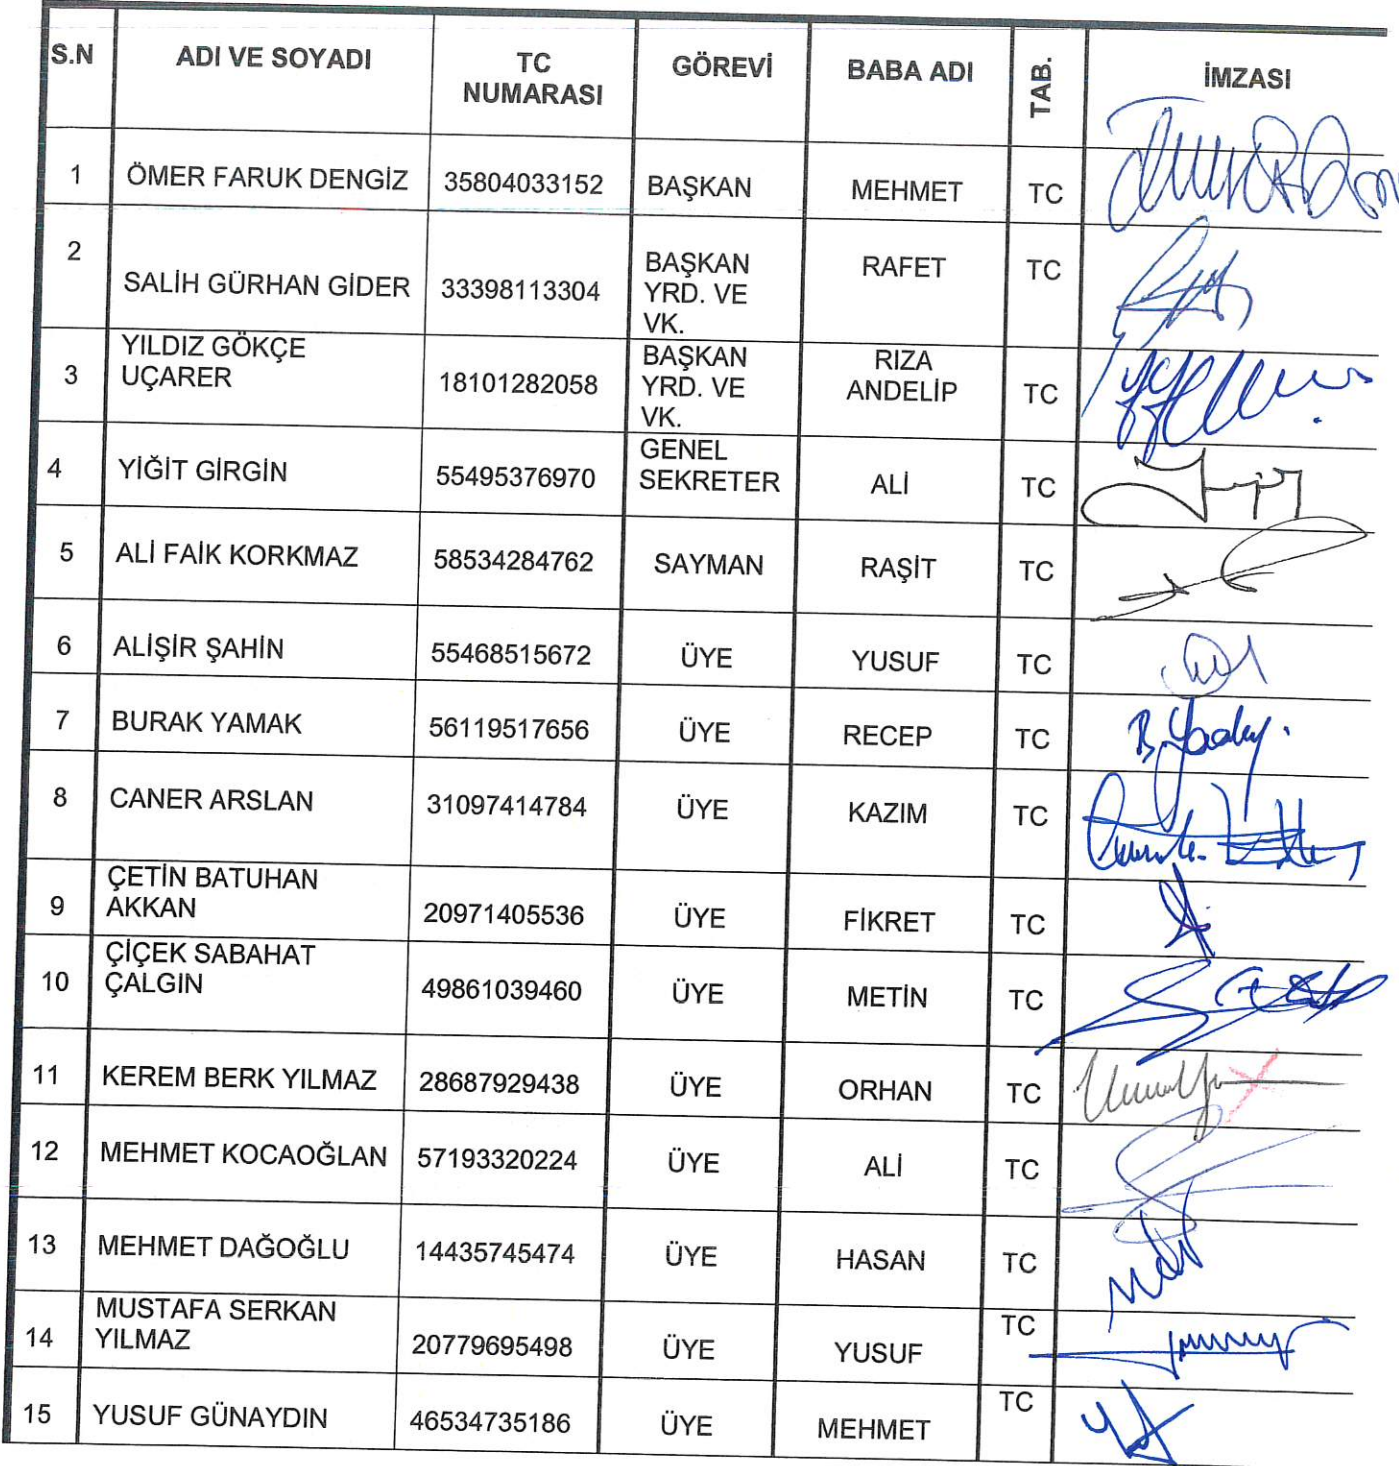 S.N ADI VE SOYADI TC NUMARASI GÖREVİ BABA ADI TAB. İMZASI
1 ÖMER FARUK DENGİZ 35804033152 BAŞKAN MEHMET TC
2 SALİH GÜRHAN GİDER 33398113304 BAŞKAN YRD. VE VK. RAFET TC
3 YILDIZ GÖKÇE UÇARER 18101282058 BAŞKAN YRD. VE VK. RIZA ANDELİP TC
4 YİĞİT GİRGİN 55495376970 GENEL SEKRETER ALİ TC
5 ALİ FAİK KORKMAZ 58534284762 SAYMAN RAŞİT TC
6 ALİŞİR ŞAHİN 55468515672 ÜYE YUSUF TC
7 BURAK YAMAK 56119517656 ÜYE RECEP TC
8 CANER ARSLAN 31097414784 ÜYE KAZIM TC
9 ÇETİN BATUHAN AKKAN 20971405536 ÜYE FİKRET TC
10 ÇİÇEK SABAHAT ÇALGIN 49861039460 ÜYE METİN TC
11 KEREM BERK YILMAZ 28687929438 ÜYE ORHAN TC
12 MEHMET KOCAOĞLAN 57193320224 ÜYE ALİ TC
13 MEHMET DAĞOĞLU 14435745474 ÜYE HASAN TC
14 MUSTAFA SERKAN YILMAZ 20779695498 ÜYE YUSUF TC
15 YUSUF GÜNAYDIN 46534735186 ÜYE MEHMET TC